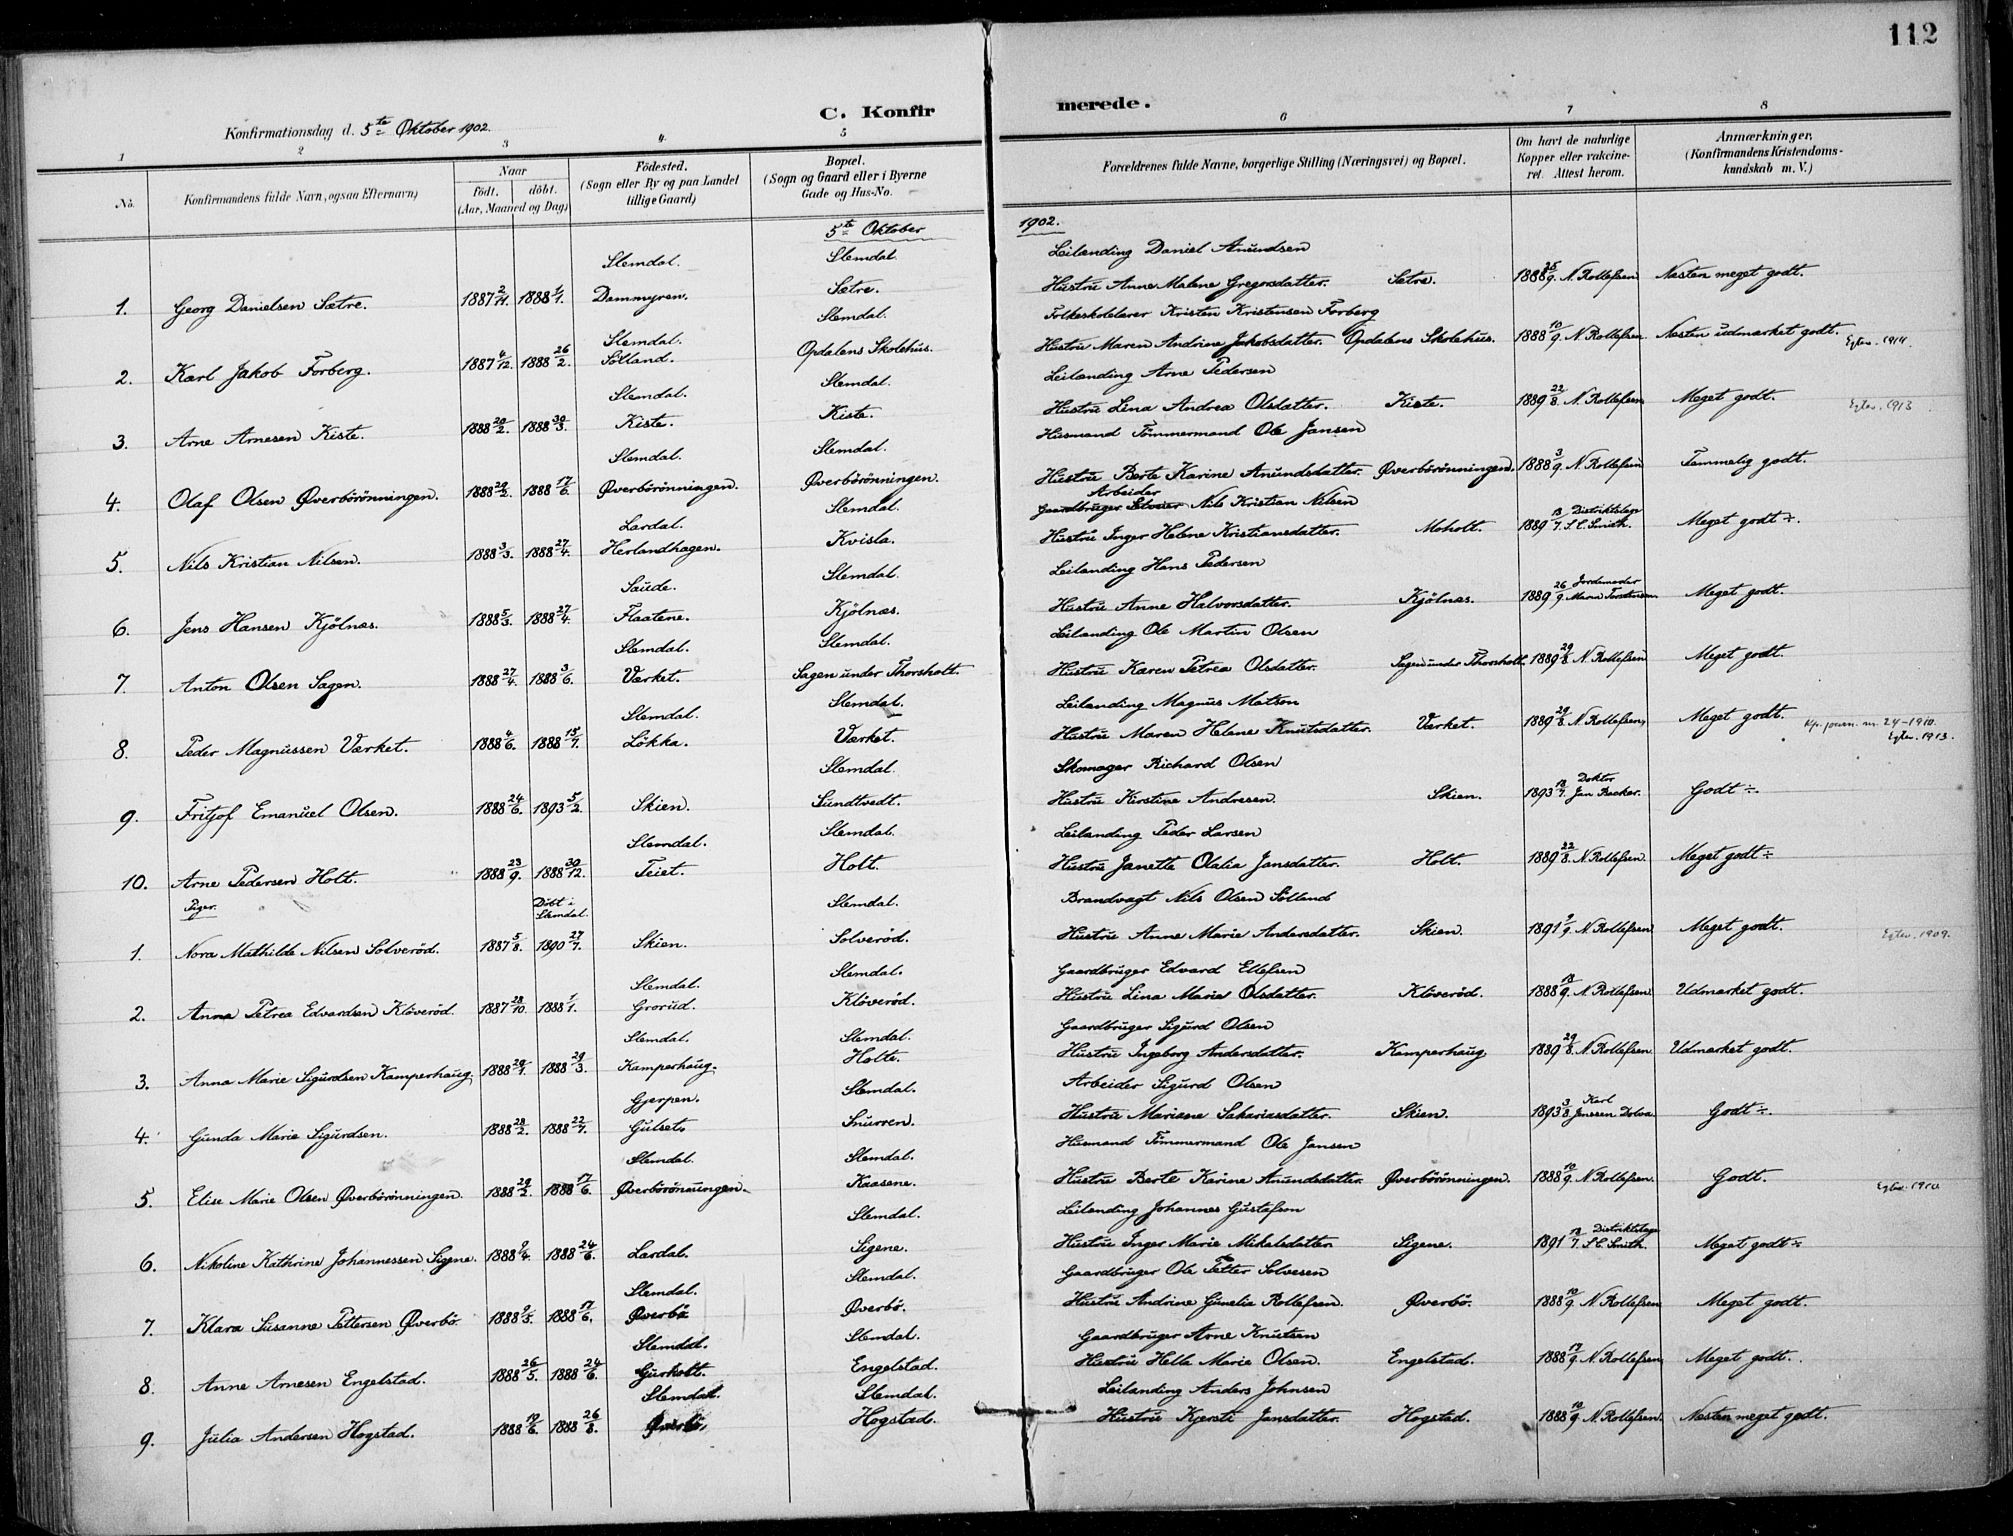 112
C. Konfirmerede.
Konfirmationsdag d. 5te Oktober 1902.
1 2 3 4. 5 6 7 8
No. Konfirmandens fulde Navn, ogsaa Efternavn) Naar født. døbt. (Aar, Maaned og Dag) Fødested. (Sogn eller By og paa Landet tillige Gaard) Bopæl. (Sogn og Gaard eller i Byerne Gade og Hus-No. Forældrenes fulde Navne, borgerlige Stilling (Næringsvei) og Bopæl. Om havt de naturlige Kopper eller vakcineret. Attest herom. Anmærkninger. (Konfirmandens Kristendomskundskab m. V.)
5te Oktober 1902.
Slemdal. Slemdal. Leilænding Daniel Amundsen
1. Georg Danielsen Sætre. 1887 2/11. 1888 1/1. Dammyren. Sætre. Hustru Anne Malene Gregorsdatter. Sætre. 1888 25/9. N. Rollefsen Næsten meget godt.
Slemdal. Slemdal. Folkeskolelærer Kristen Kristensen Forberg
2. Karl Jakob Forberg. 1887 4/12. 1888 26/2. Sölland. Opdalens Skolehus. Hustru Maren Andrine Jakobsdatter. Opdalens Skolehus. 1888 10/9. N. Rollefsen Næsten udmærket godt. Egtev. 1914.
Slemdal. Slemdal. Leilænding Arne Pedersen
3. Arne Arnesen Kiste. 1888 20/2. 1888 30/3. Kiste. Kiste. Hustru Lina Andrea Olsdatter. Kiste. 1889 22/8. N. Rollefsen Meget godt. Egtev. 1913
Slemdal. Slemdal. Husmand Tömmermand Ole Jansen
4. Olaf Olsen Øverbörönningen. 1888 29/2. 1888 17/6. Øverbörönningen. Øverbörönningen. Hustru Berte Karine Anundsdatter. Øverbörönningen. 1888 3/9. N. Rollefsen Temmelig godt.
Lardal. Slemdal. Arbeider Nils Kristian Nilsen
5. Nils Kristian Nilsen. 1888 3/3. 1888 27/4. Herlandhagen. Kvisla. Hustru Inger Helene Kristiansdatter. Moholt. 1889 13/7. Distriktslæge S. C. Smith. Meget godt ÷.
Saude. Slemdal. Leilænding Hans Pedersen
6. Jens Hansen Kjölnæs. 1888 5/3. 1888 27/4. Flaatene. Kjölnæs. Hustru Anne Halvorsdatter. Kjölnæs. 1889 26/9. Jordemoder Maren Torstensen Meget godt.
Slemdal. Slemdal. Leilænding Ole Martin Olsen
7. Anton Olsen Sagen. 1888 27/4. 1888 3/6. Værket. Sagen under Thorsholt. Hustru Karen Petrea Olsdatter. Sagen under Thorsholt. 1889 29/8. N. Rollefsen Meget godt.
Slemdal. Slemdal. Leilænding Magnus Matson
8. Peder Magnussen Værket. 1888 4/6. 1888 15/7. Lökka. Værket. Hustru Maren Helene Knutsdatter. Værket. 1889 29/8. N. Rollefsen Meget godt. Kp. journ. nr. 24-1910. Egtev. 1913.
Slemdal. Skomager Richard Olsen
9. Fritjof Emanuel Olsen. 1888 24/6. 1893 5/2. Skien. Sundtvedt. Hustru Kirstine Andresen. Skien. 1893 18/7. Doktor Jan Becker. Godt ÷.
Slemdal. Slemdal. Leilænding Peder Larsen
10. Arne Pedersen Holt. 1888 23/9. 1888 30/12. Teiet. Holt. Hustru Janette Olalia Jansdatter. Holt. 1889 22/8. N. Rollefsen. Meget godt ÷
Piger. Döbt i Slemdal. Slemdal. Brandvagt Nils Olsen Sölland
1. Nora Mathilde Nilsen Solveröd. 1887 5/8. 1890 27/7. Skien. Solveröd. Hustru Anne Marie Andersdatter. Skien. 1891 9/9. N. Rollefsen Meget godt. Egtev. 1909.
Slemdal. Slemdal. Gaardbruger Edvard Ellefsen
2. Anna Petrea Edvardsen Klöveröd. 1887 28/10. 1888 1/1. Grorud. Klöveröd. Hustru Lina Marie Olsdatter. Klöveröd. 1888 13/9. N. Rollefsen Udmærket godt.
Slemdal. Slemdal. Gaardbruger Sigurd Olsen
3. Anna Marie Sigurdsen Kamperhaug. 1888 29/1. 1888 29/3. Kamperhaug. Holte. Hustru Ingeborg Andersdatter. Kamperhaug 1889 29/8. N. Rollefsen. Udmærket godt.
Gjerpen. Slemdal. Arbeider Sigurd Olsen
4. Gunda Marie Sigurdsen. 1888 28/2. 1888 22/7. Gulset. Snurren. Hustru Mariane Sakariasdatter. Skien. 1893 3/8 Karl Jenssen Dolva. Godt ÷.
Slemdal. Slemdal. Husmand Tömmermand Ole Jansen
5. Elise Marie Olsen Øverbörönningen. 1888 29/2. 1888 17/6. Øverbörönningen. Kaasene. Hustru Berte Karine Anundsdatter. Øverbörönningen. 1888 10/9. N. Rollefsen. Godt. Egtev. 1910
Slemdal. Leilænding Johannes Gustafson
6. Nikoline Kathrine Johannessen Sigene. 1888 9/4. 1888 24/6. Lardal. Sigene. Hustru Inger Marie Mikalsdatter. Sigene. 1891 18/7. Distriktslæge S. C. Smith. Meget godt ÷
Slemdal. Slemdal. Gaardbruger Ole Petter Solvesen
7. Klara Susanne Pettersen Øverbö. 1888 9/5. 1888 17/6. Øverbö Øverbö. Hustru Andrine Gunelia Rollefsen. Øverbö. 1888 10/9. N. Rollefsen Meget godt.
Slemdal. Slemdal. Gaardbruger Arne Knutsen
8. Anne Arnesen Engelstad. 1888 26/5. 1888 24/6. Gurholt. Engelstad. Hustru Helle Marie Olsen. Engelstad. 1888 17/9. N. Rollefsen Meget godt.
Slemdal. Slemdal. Leilænding Anders Johnsen
9. Julia Andersen Hogstad. 1888 19/6. 1888 26/8. Øverbö. Hogstad. Hustru Kjersti Jansdatter. Hogstad. 1888 10/9. N. Rollefsen. Næsten meget godt.